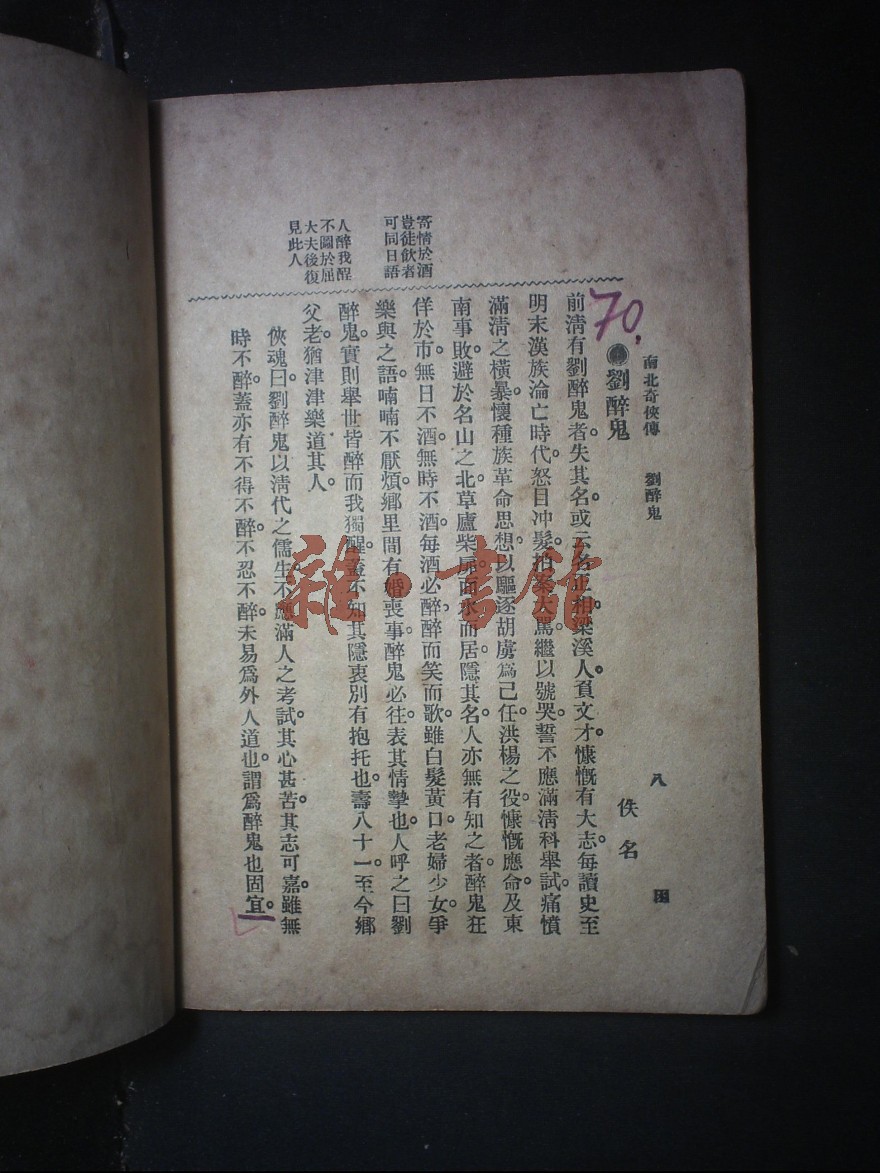 南北奇俠傳　劉醉鬼　八
70.
劉醉鬼　佚名
前清有劉醉鬼者。失其名。或云名正相。梁溪人。負文才。慷慨有大志。每讀史至
明末漢族淪亡時代。怒目冲髮。拍案大罵。繼以號哭。誓不應滿清科舉試。痛憤
滿清之橫暴。懷種族革命思想。以驅逐胡虜爲己任。洪楊之役。慷慨應命。及東
南事敗。避於名山之北。草廬柴扉。面水而居。隱其名。人亦無有知之者。醉鬼狂
佯於市。無日不酒。無時不酒。每酒必醉。醉而笑而歌。雖白髮黃口。老婦少女。爭
樂與之語。喃喃不厭煩。鄉里間有婚喪事。醉鬼必往。表其情摯也。人呼之曰劉
醉鬼。實則舉世皆醉而我獨醒。蓋不知其隱衷別有抱托也。壽八十一。至今鄉
父老。猶津津樂道其人。
俠魂曰。劉醉鬼以清代之儒生。不應滿人之考試。其心甚苦。其志可嘉。雖無
時不醉。蓋亦有不得不醉。不忍不醉。未易爲外人道也。謂爲醉鬼也固宜。
寄情於酒
豈徒飲者
可同日語
人醉我醒
不圖於屈
大夫後復
見此人
雜·書館